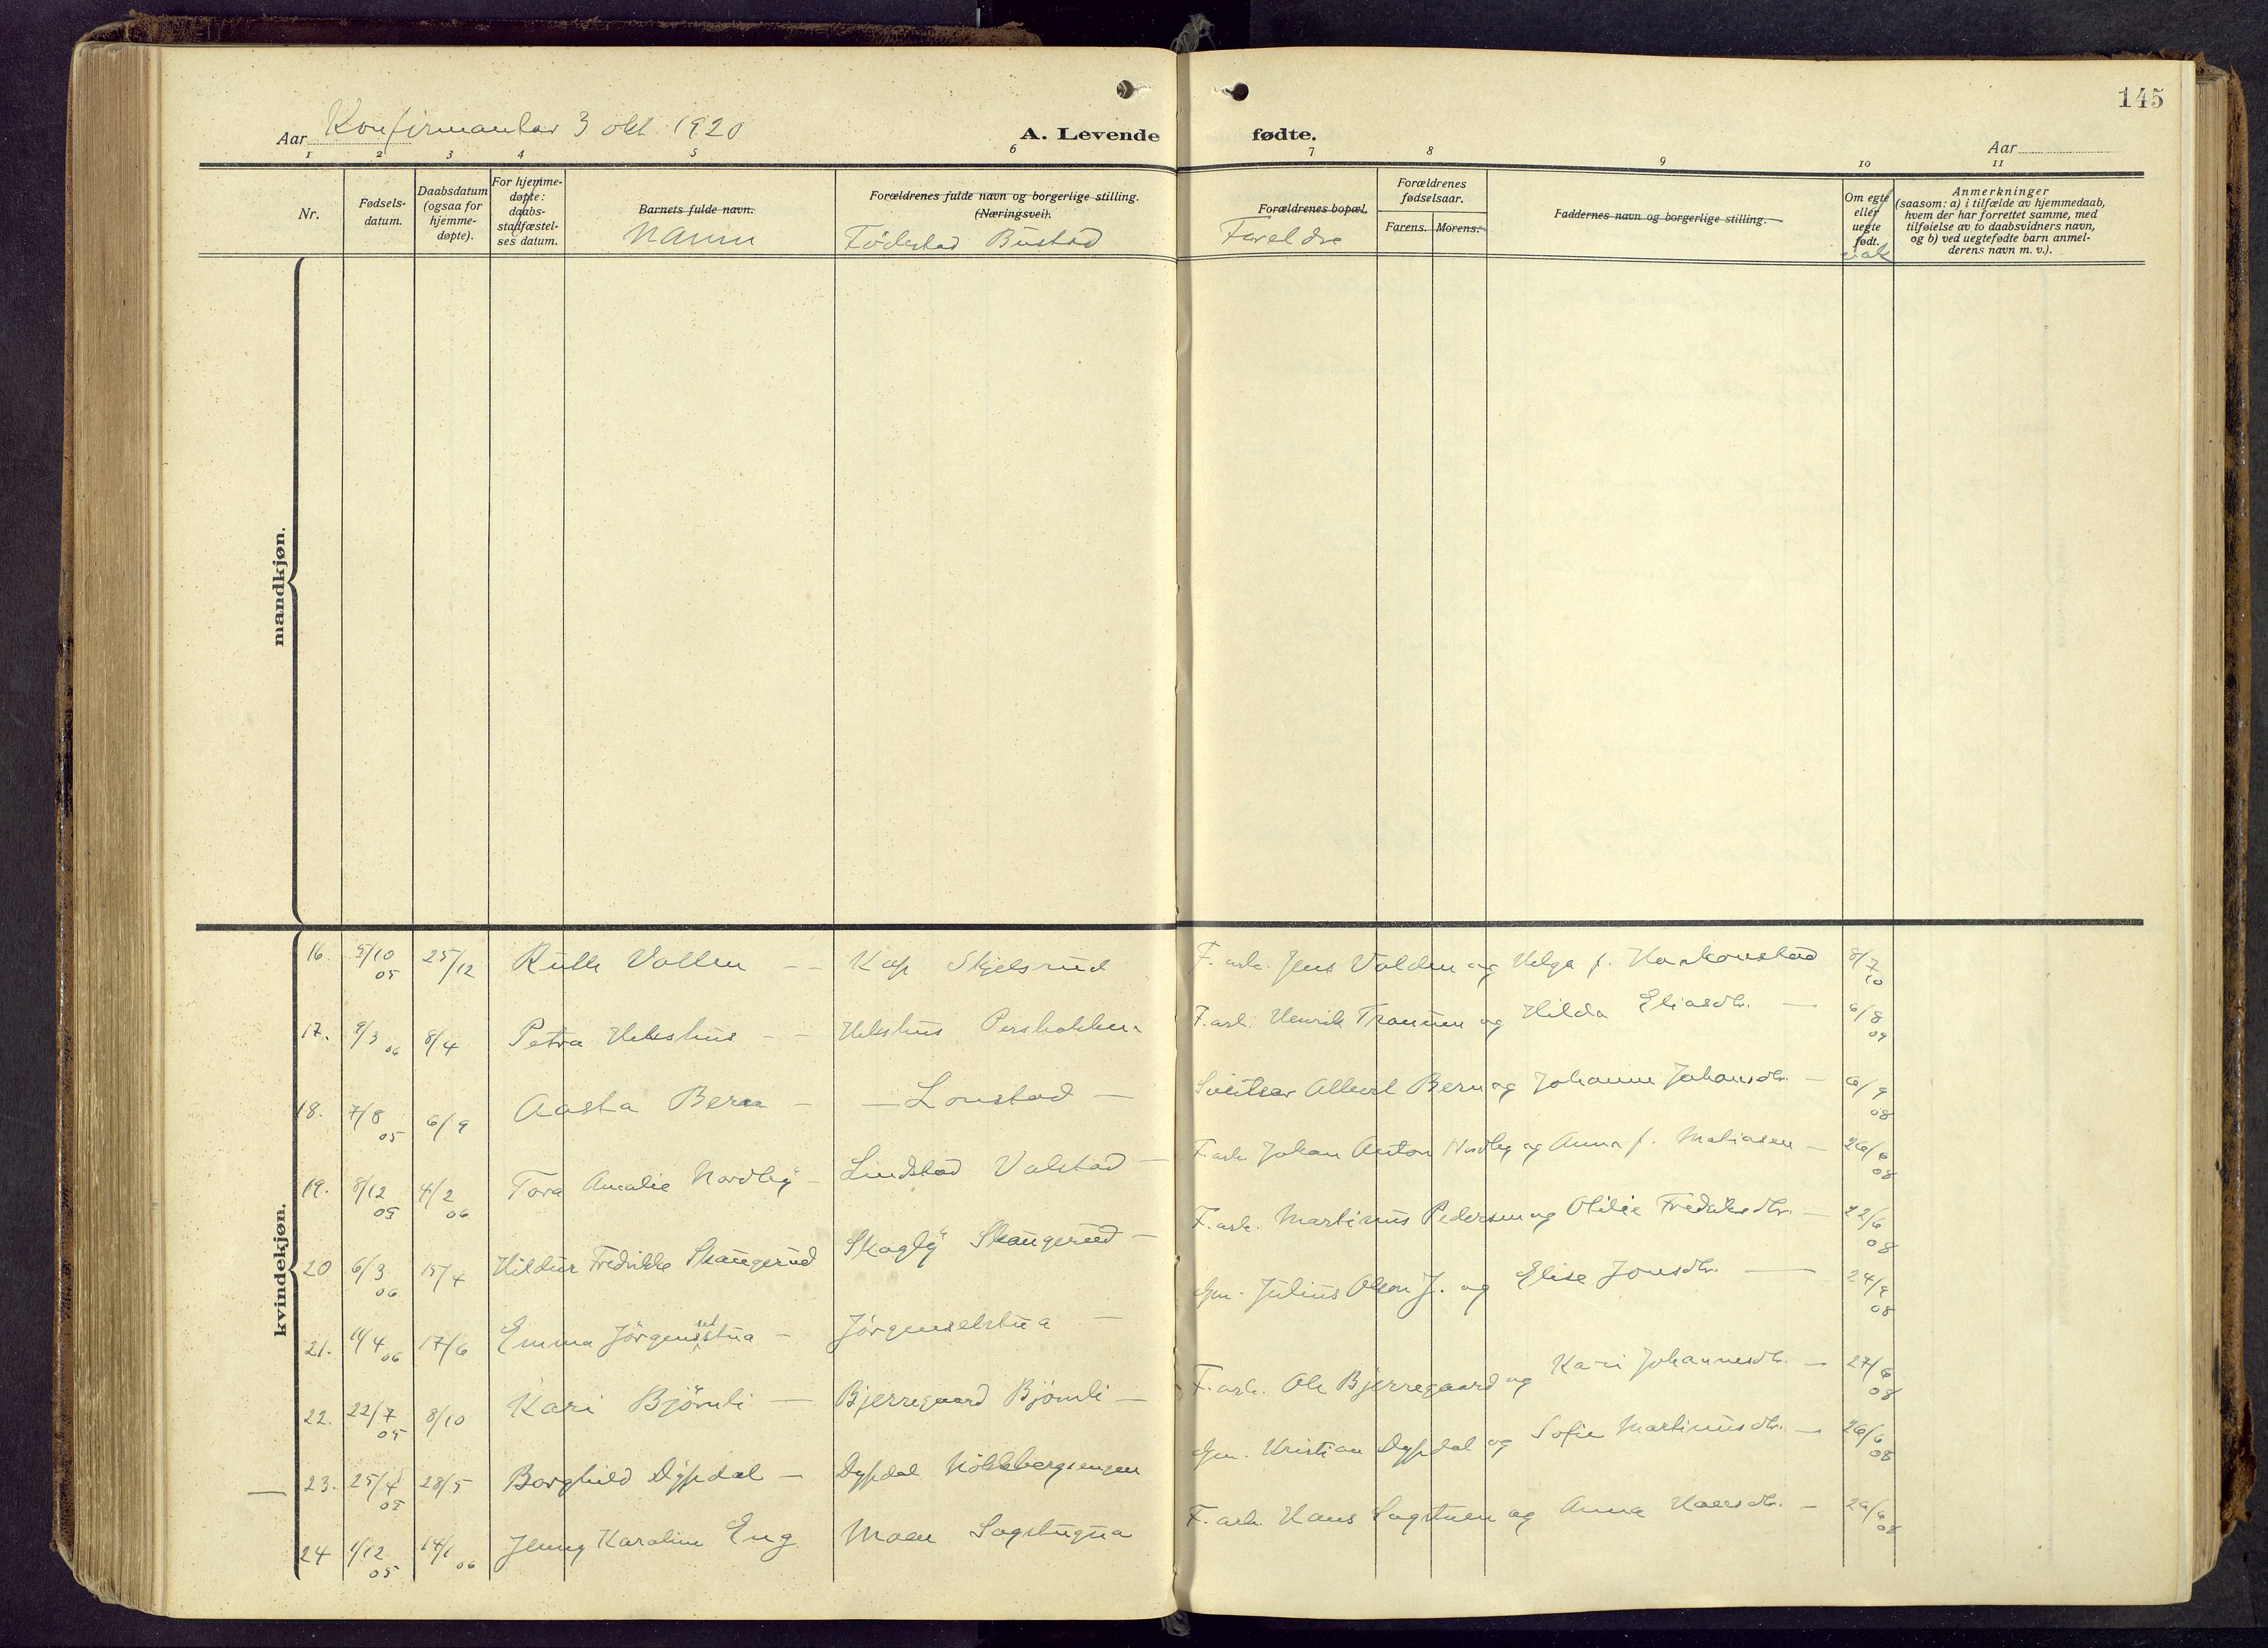 145
Aar Konfirmantar 3 okt. 1920 A. Levende fødte. Aar
1 2 3 4 5 6 7 8 9 10 11
Nr.
Fødsels-
datum.
Daabsdatum
(ogsaa for
hjemme-
døpte).
For hjemme-
døpte:
daabs-
stadfæstel-
ses datum.
Barnets fulde navn.
Namn
Forældrenes fulde navn og borgerlige stilling.
(Næringsvei).
Fødestad Bustad
Forældrenes bopæl.
Foreldre
Forældrenes
fødselsaar.
Farens. Morens.
Faddernes navn og borgerlige stilling.
Om egte
eller
uegte
født.
vak
Anmerkninger
(saasom: a) i tilfælde av hjemmedaab,
hvem der har forrettet samme, med
tilføielse av to daabsvidners navn,
og b) ved uegtefødte barn anmel-
derens navn m. v.).
mandkjøn.
kvindekjøn.
16. 5/10 05 25/12 Ruth Vollen - - Kap Skjelsrud F. arb. Jens Volden og Helga f. Haakonstad 8/7 10
17. 9/3 06 8/4 Petra Hekshus - - Hekshus Persbakken F. arb. Henrik og Hilda Eliasdtr. — 6/8 09
18. 7/8 05 6/9 Aasta Bern - — Lonstad — Sveitser Albert Bern og Johanne Johansdtr. — 6/9 08
19. 8/12 05 4/2 06 Tora Amalie Nordby - Lindstad Valstad — F. arb. Johan Anton Nordby og Anna f. Matiasen — 26/6 08
20 6/3 06 15/4 Hildur Fredrikke Skaugerud Skogly Skaugerud — F. arb. Martinus Pedersen og Otilie Fredriksdtr. — 22/6 08
21. 11/4 06 17/6 Emma Jörgensetstua - Jörgensetstua — Gm. Julius Olsen J. og Elise Jonsdtr. — 24/8 08
22. 22/7 05 8/10 Kari Björnli — Bjerregaard Björnli — F. arb. Ole Bjerregaard og Kari Johannesdtr. — 27/6 08
23. 25/4 05 28/5 Borghild Dypdal — Dypdal Gm. Kristian Dypdal og Sofie Martinusdtr. — 26/6 08
24 1/12 05 14/1 06 Jenny Karoline Eng Moen Sagstugua F. arb. Hans Sagstuen og Anna Hansdtr. — 29/6 08